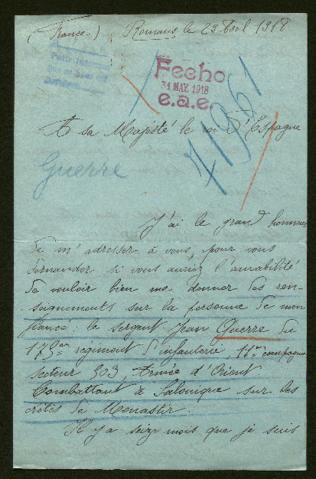 (France) Romans le 23 Avril 1918
Fecho
31 MAY. 1918
e.a.e.
71961
A sa Majesté le roi d'Espagne
Guerre
J'ai le grand honneur
de m'adresser à vous, pour vous
demander si vous auriez l'amabilité
de vouloir bien me donner des ren-
seignements sur la personne de mon
fiancé; le sergent Jean Guerre du
175eme régiment d'infanterie 11e compagnie
secteur 503 Armée d'Orient
Combattant à Salonique sur les
crêtes de Monastir.
Il y a seize mois que je suis